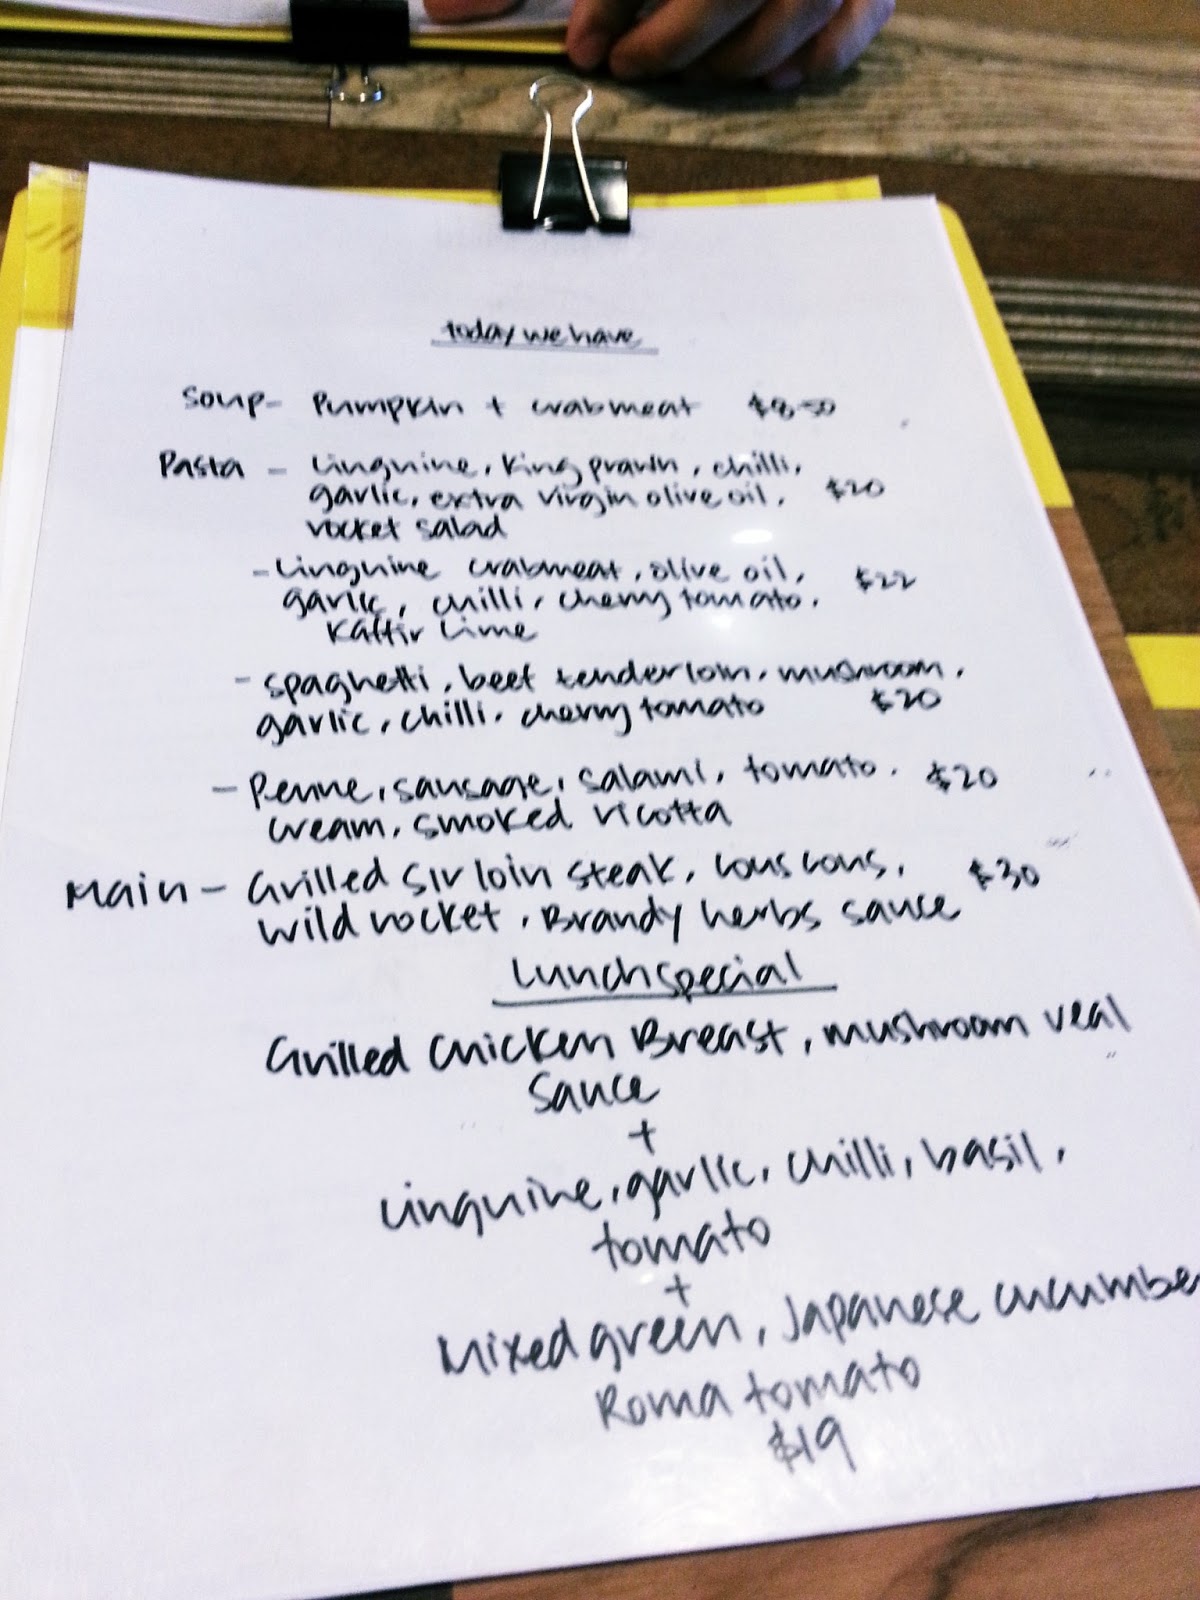 today we have
Soup - Pumpkin + crabmeat $8.50
Pasta - Linguine, King prawn, chilli,
garlic, extra virgin olive oil, $20
rocket salad
- Linguine crabmeat, olive oil, $22
garlic, chilli, cherry tomato,
Kaffir Lime
- spaghetti, beef tenderloin, mushroom,
garlic, chilli, cherry tomato $20
- Penne, sausage, salami, tomato, $20
cream, smoked ricotta
Main - Grilled Sirloin steak, couscous, $30
wild rocket, Brandy herbs sauce
Lunch special
Grilled Chicken Breast, mushroom veal
sauce
+
Linguine, garlic, chilli, basil,
tomato
+
Mixed green, Japanese cucumber
Roma tomato
$19